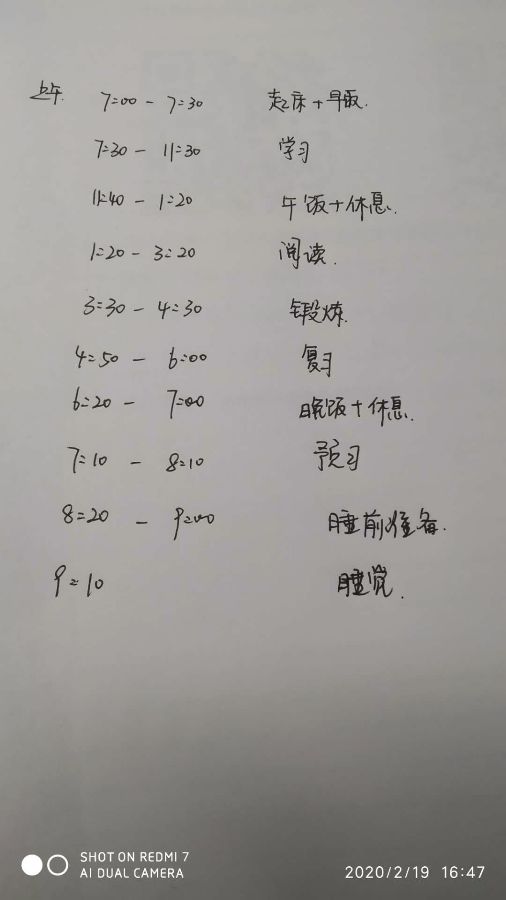 上午. 7:00 - 7:30 起床+早饭.
7:30 - 11:30 学习
11:40 - 1:20 午饭+休息.
1:20 - 3:20 阅读.
3:30 - 4:30 锻炼.
4:50 - 6:00 复习
6:20 - 7:00 晚饭+休息.
7:10 - 8:10 预习
8:20 - 9:00 睡前准备.
9:10 睡觉.
SHOT ON REDMI 7
AI DUAL CAMERA
2020/2/19 16:47